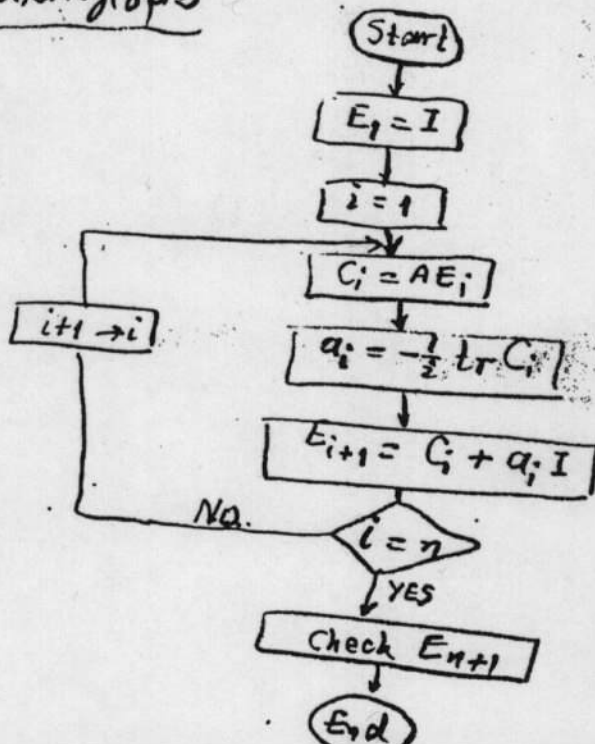 Start
E₁ = I
i = 1
Cᵢ = A Eᵢ
i+1 → i
aᵢ = -1/i tr Cᵢ
Eᵢ₊₁ = Cᵢ + aᵢ I
NO.
i = n
YES
Check Eₙ₊₁
End